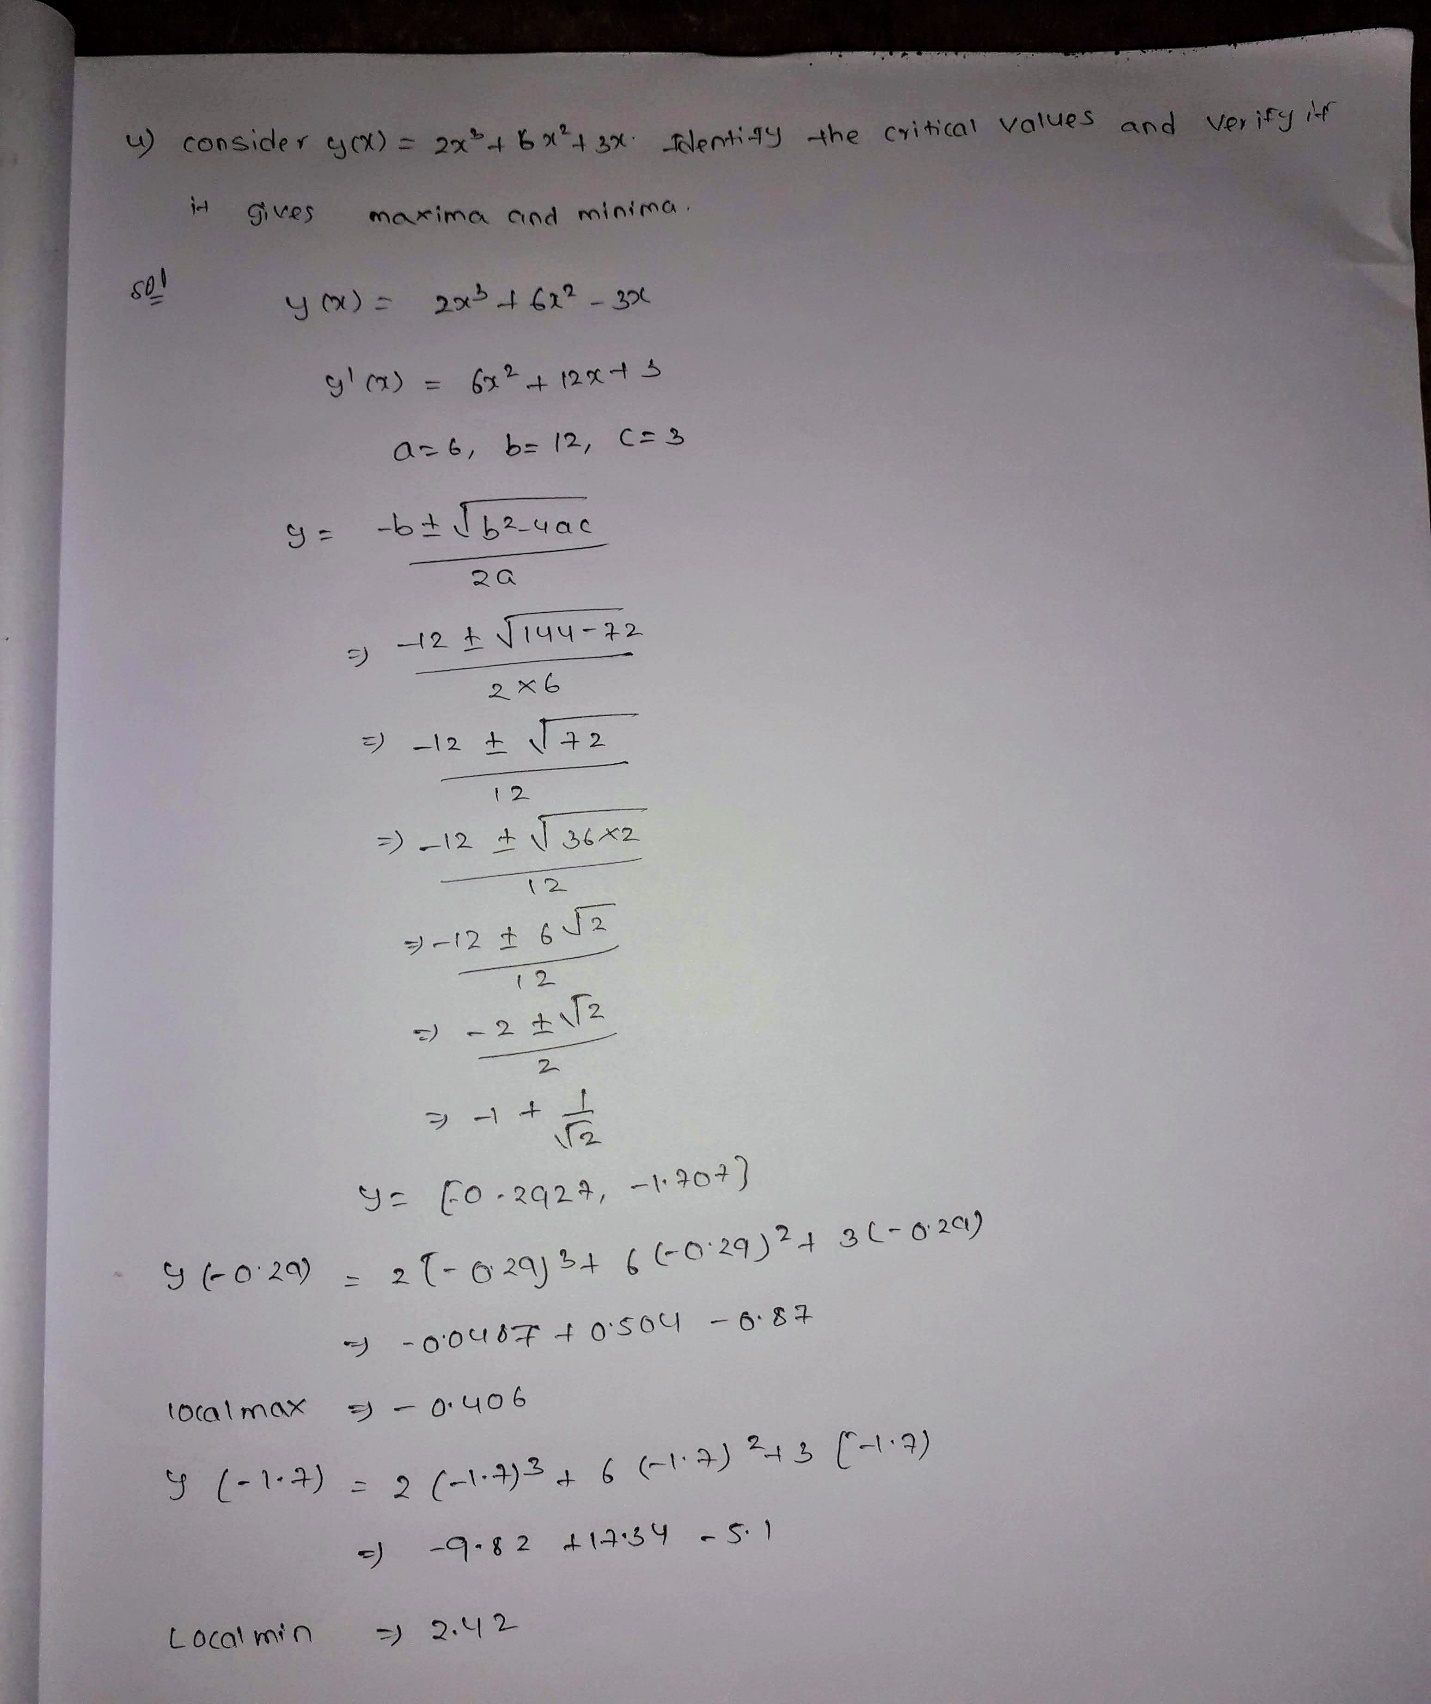 4) consider y(x) = 2x³ + 6x² + 3x. Identify the critical values and verify if
it gives maxima and minima.
sol
y(x) = 2x³ + 6x² - 3x
y'(x) = 6x² + 12x + 3
a=6, b=12, c=3
y = -b ± √b²-4ac
2a
=) -12 ± √144-72
2×6
=) -12 ± √72
12
=) -12 ± √36×2
12
=) -12 ± 6√2
12
=) -2 ± √2
2
=) -1 + 1
√2
y = {-0.2927, -1.707}
y(-0.29) = 2(-0.29)3 + 6(-0.29)2 + 3(-0.29)
=) -0.0487 + 0.504 - 0.87
local max =) -0.406
y(-1.7) = 2(-1.7)3 + 6(-1.7)2 + 3(-1.7)
=) -9.82 + 17.34 - 5.1
Local min =) 2.42